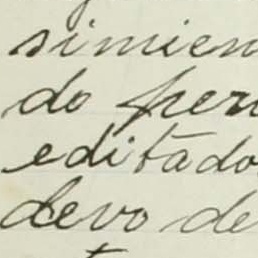 simien
do per
editado
devo de